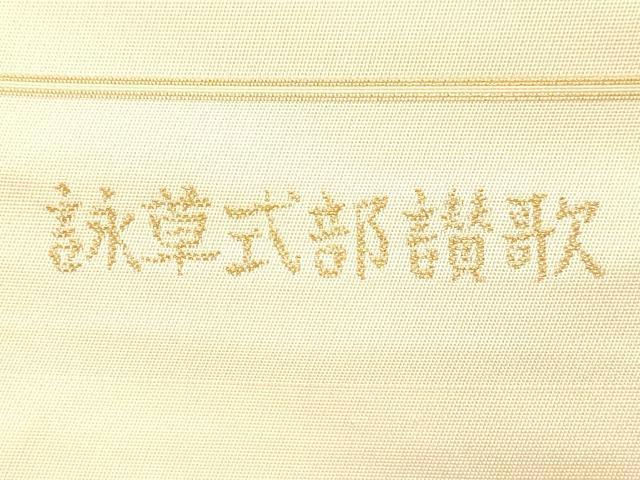 詠草式部讃歌